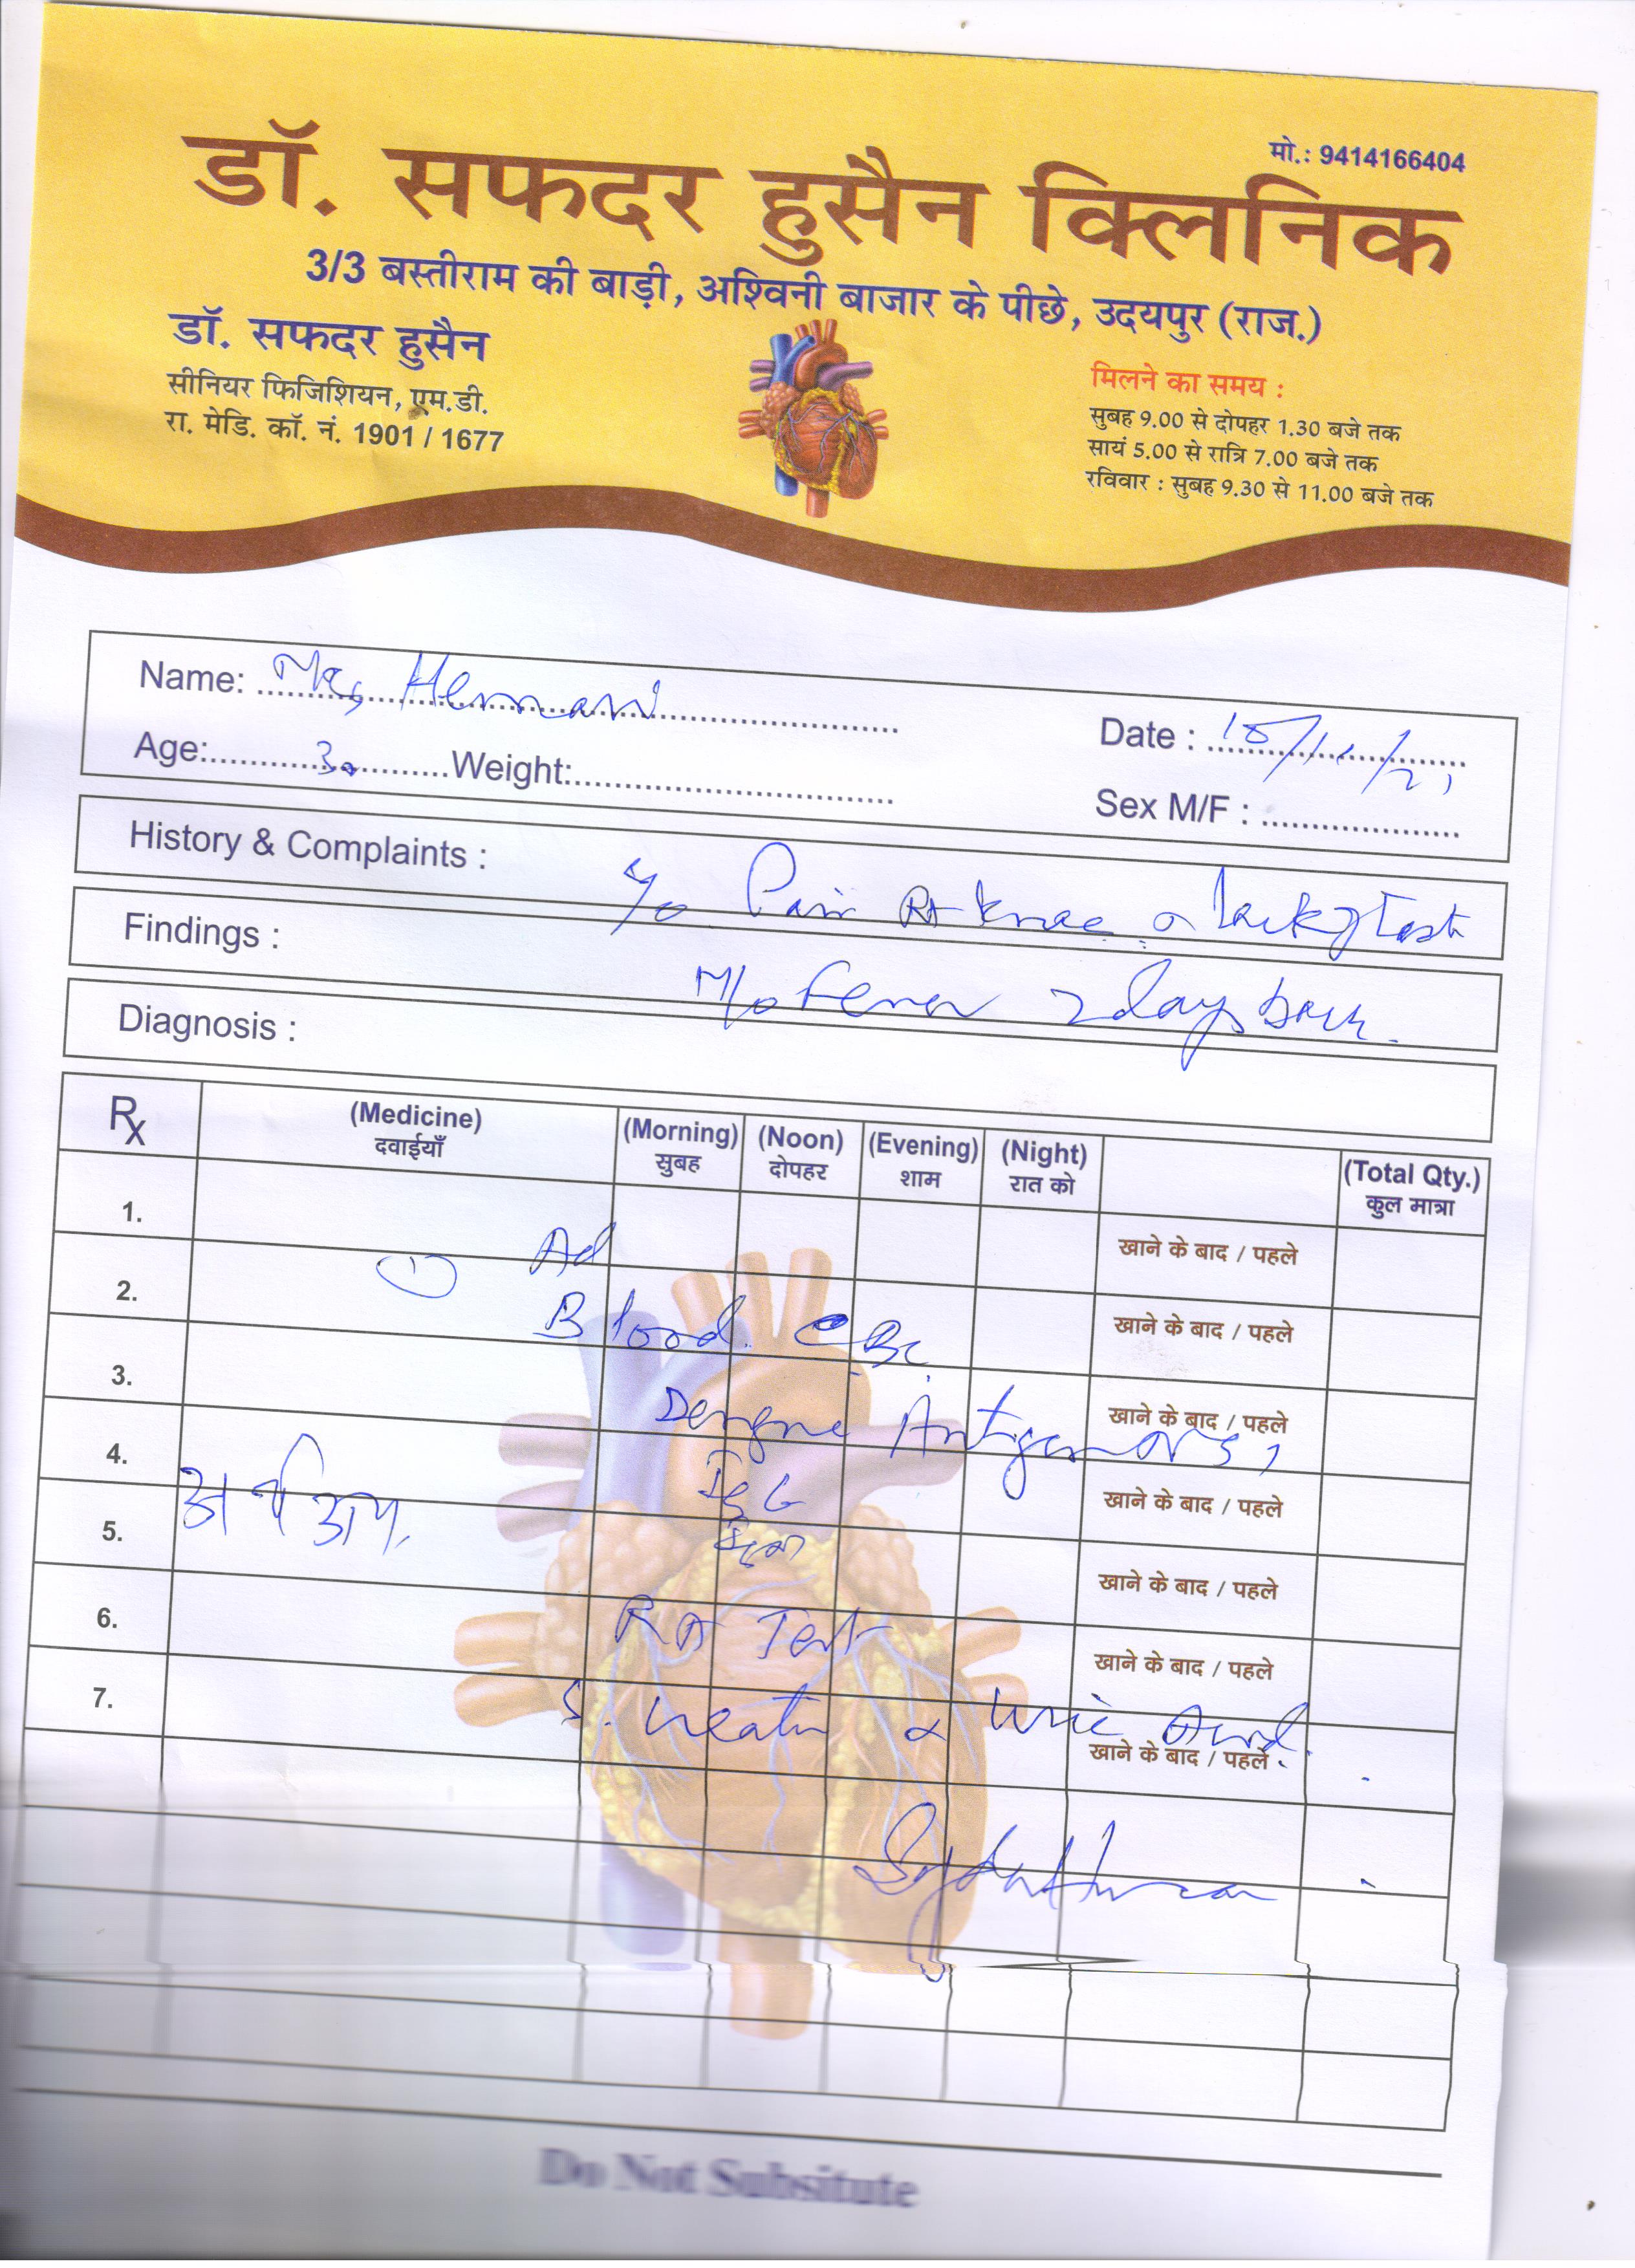 मो.: 9414166404
डॉ. सफदर हुसैन क्लिनिक
3/3 बस्तीराम की बाड़ी, अश्विनी बाजार के पीछे, उदयपुर (राज.)
डॉ. सफदर हुसैन
सीनियर फिजिशियन, एम.डी.
रा. मेडि. कॉ. नं. 1901 / 1677
मिलने का समय :
सुबह 9.00 से दोपहर 1.30 बजे तक
सायं 5.00 से रात्रि 7.00 बजे तक
रविवार : सुबह 9.30 से 11.00 बजे तक
Name:
Date :
Age: 30 Weight:
Sex M/F :
History & Complaints :
Pain Rt knee
Findings :
H/o Fever 2 days back.
Diagnosis :
Rx (Medicine) (Morning) (Noon) (Evening) (Night) (Total Qty.)
दवाईयाँ सुबह दोपहर शाम रात को कुल मात्रा
1. खाने के बाद / पहले
Ad
2. खाने के बाद / पहले
Blood CBC
3. खाने के बाद / पहले
Dengue Antigen NS1
4. खाने के बाद / पहले
IgG
5. खाने के बाद / पहले
IgM
6. खाने के बाद / पहले
RA Test
7. खाने के बाद / पहले
S. Creatin & Uric Acid.
Do Not Subsitute